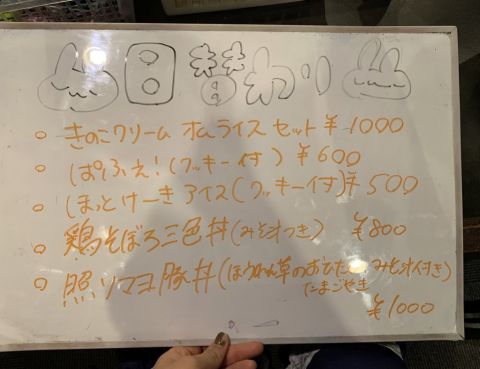 日替わり
○ きのこクリーム オムライス セット ¥1000
○ ぱふぇ!(クッキー付) ¥600
○ ほっとけーき アイス(クッキー付)¥500
○ 鶏そぼろ三色丼(みそ汁つき) ¥800
○ 照りマヨ豚丼(ほうれん草のおひたし みそ汁付き)
たまごやき
¥1000